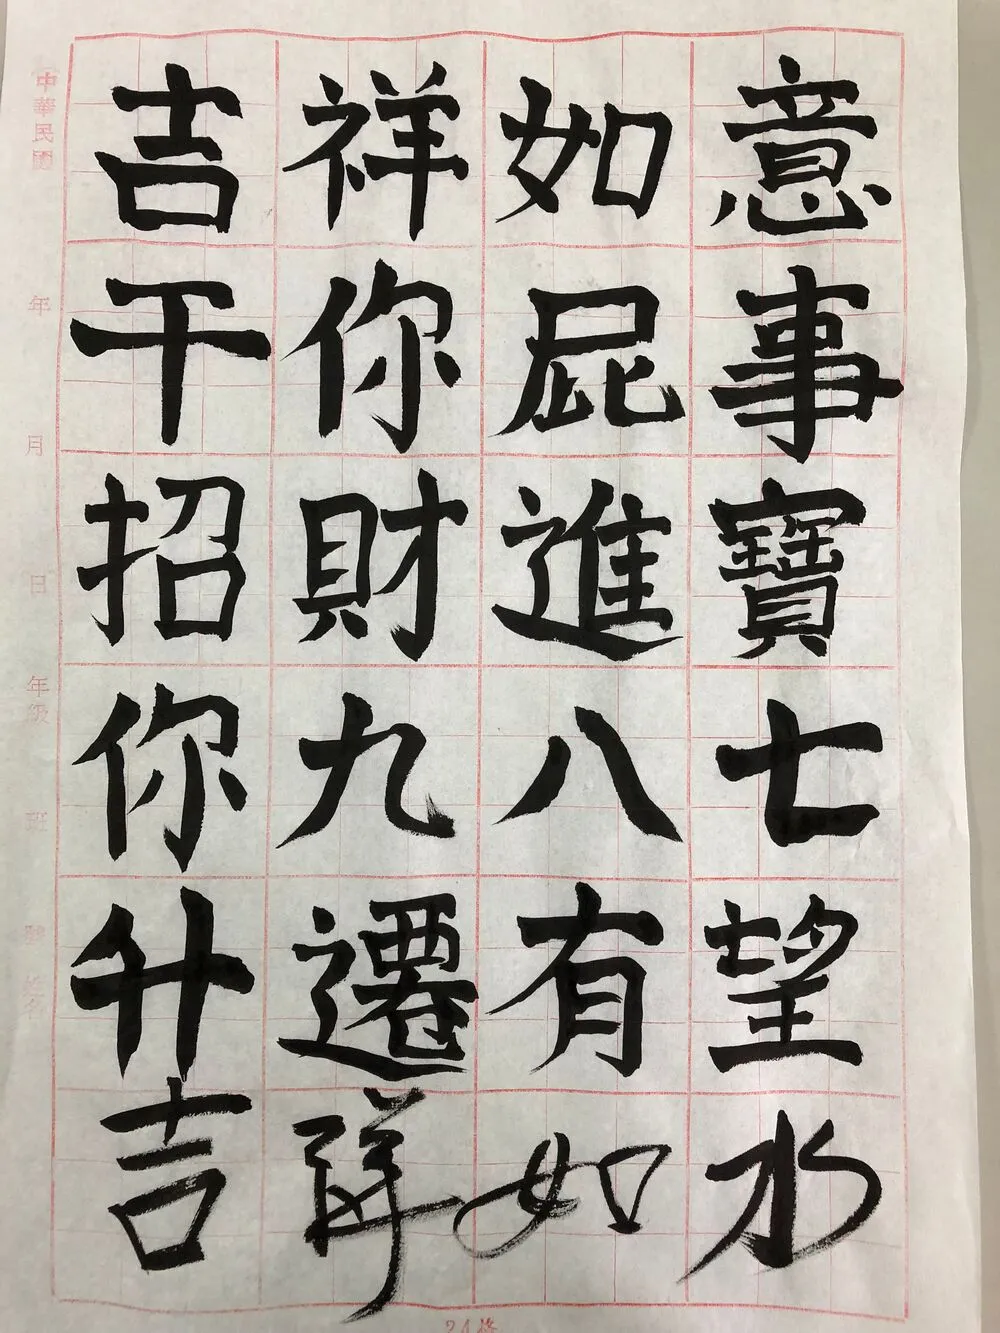 吉祥如意
干你屁事
招財進寶
你九八七
升遷有望
吉祥如水
中華民國 年 月 日 年級 班 號 姓名
24格